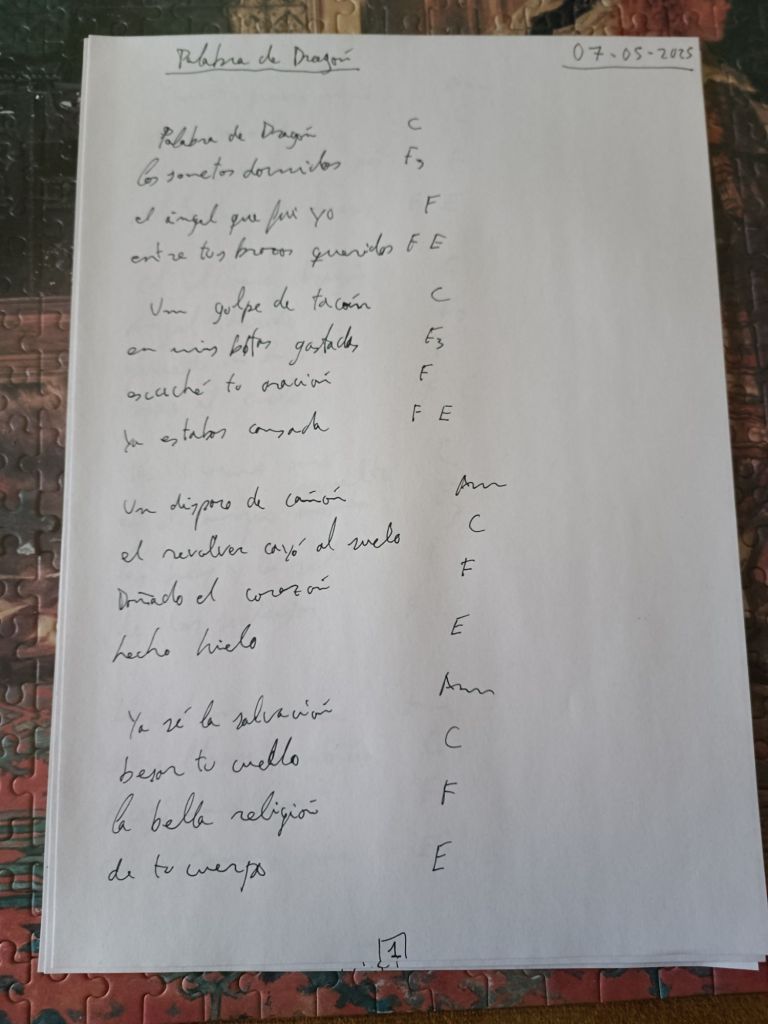 Palabra de Dragón
07-05-2025
Palabra de Dragón C
los sonetos dormidos
el ángel que fui yo F
entre tus brazos queridos F E
Un golpe de tacón C
en mis botas gastadas
escuché tu oración F
Ya estabas cansada F E
Un disparo de cañón Am
el revolver cayó al suelo C
Dañado el corazón F
hecho hielo E
Ya sé la salvación Am
besar tu cuello C
la bella religión F
de tu cuerpo E
1